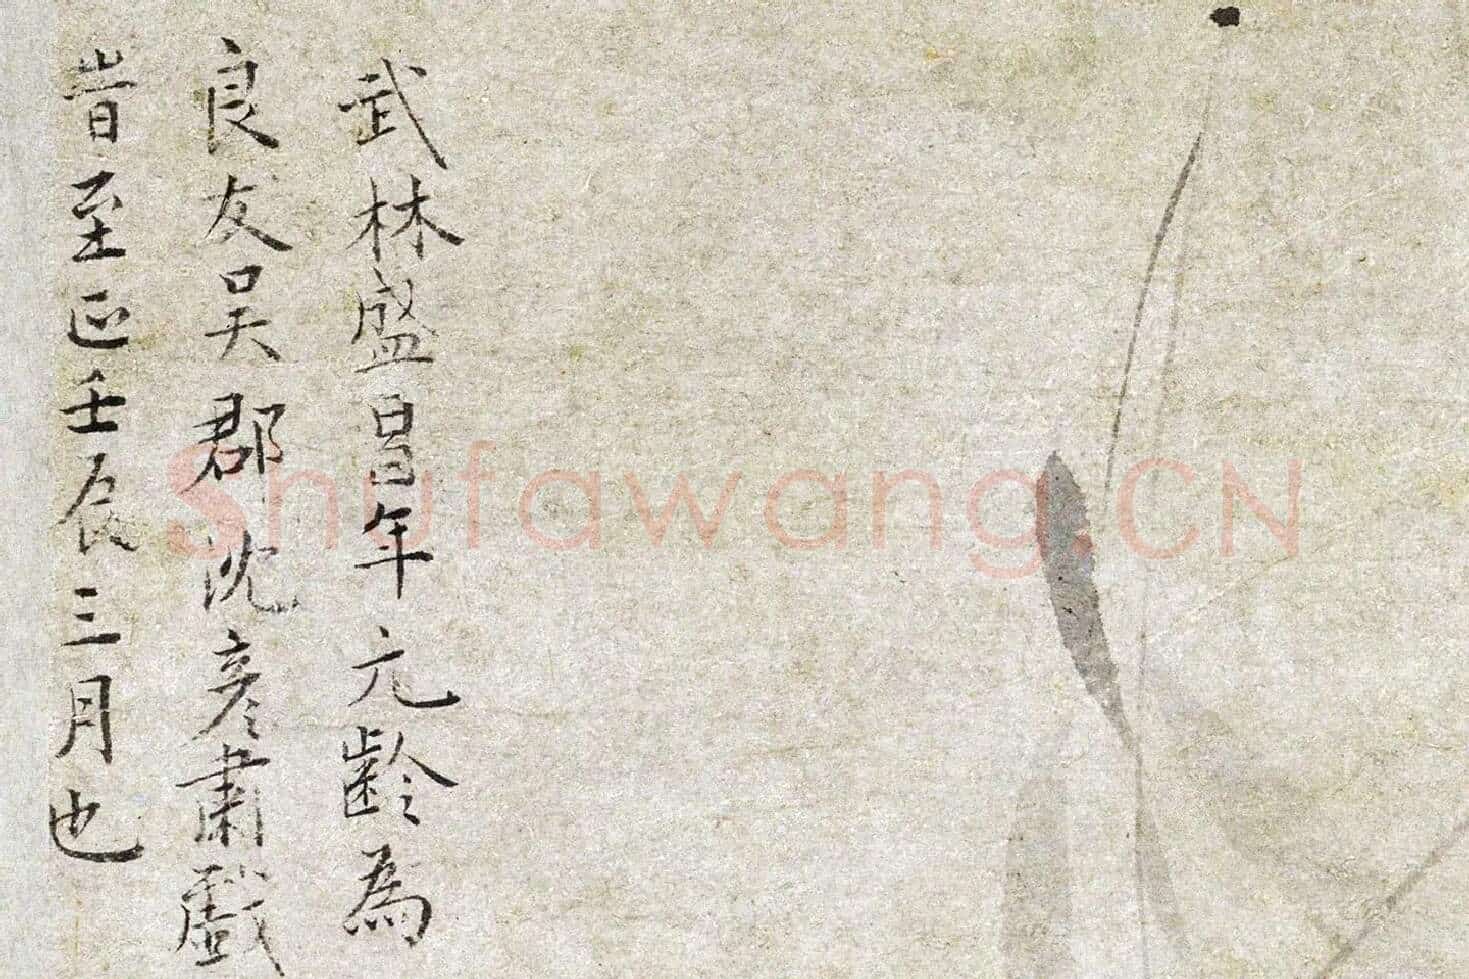 武林盛昌年元齡為
良友吳郡沈彥肅戲
旹至正壬辰三月也
Shufawang.CN